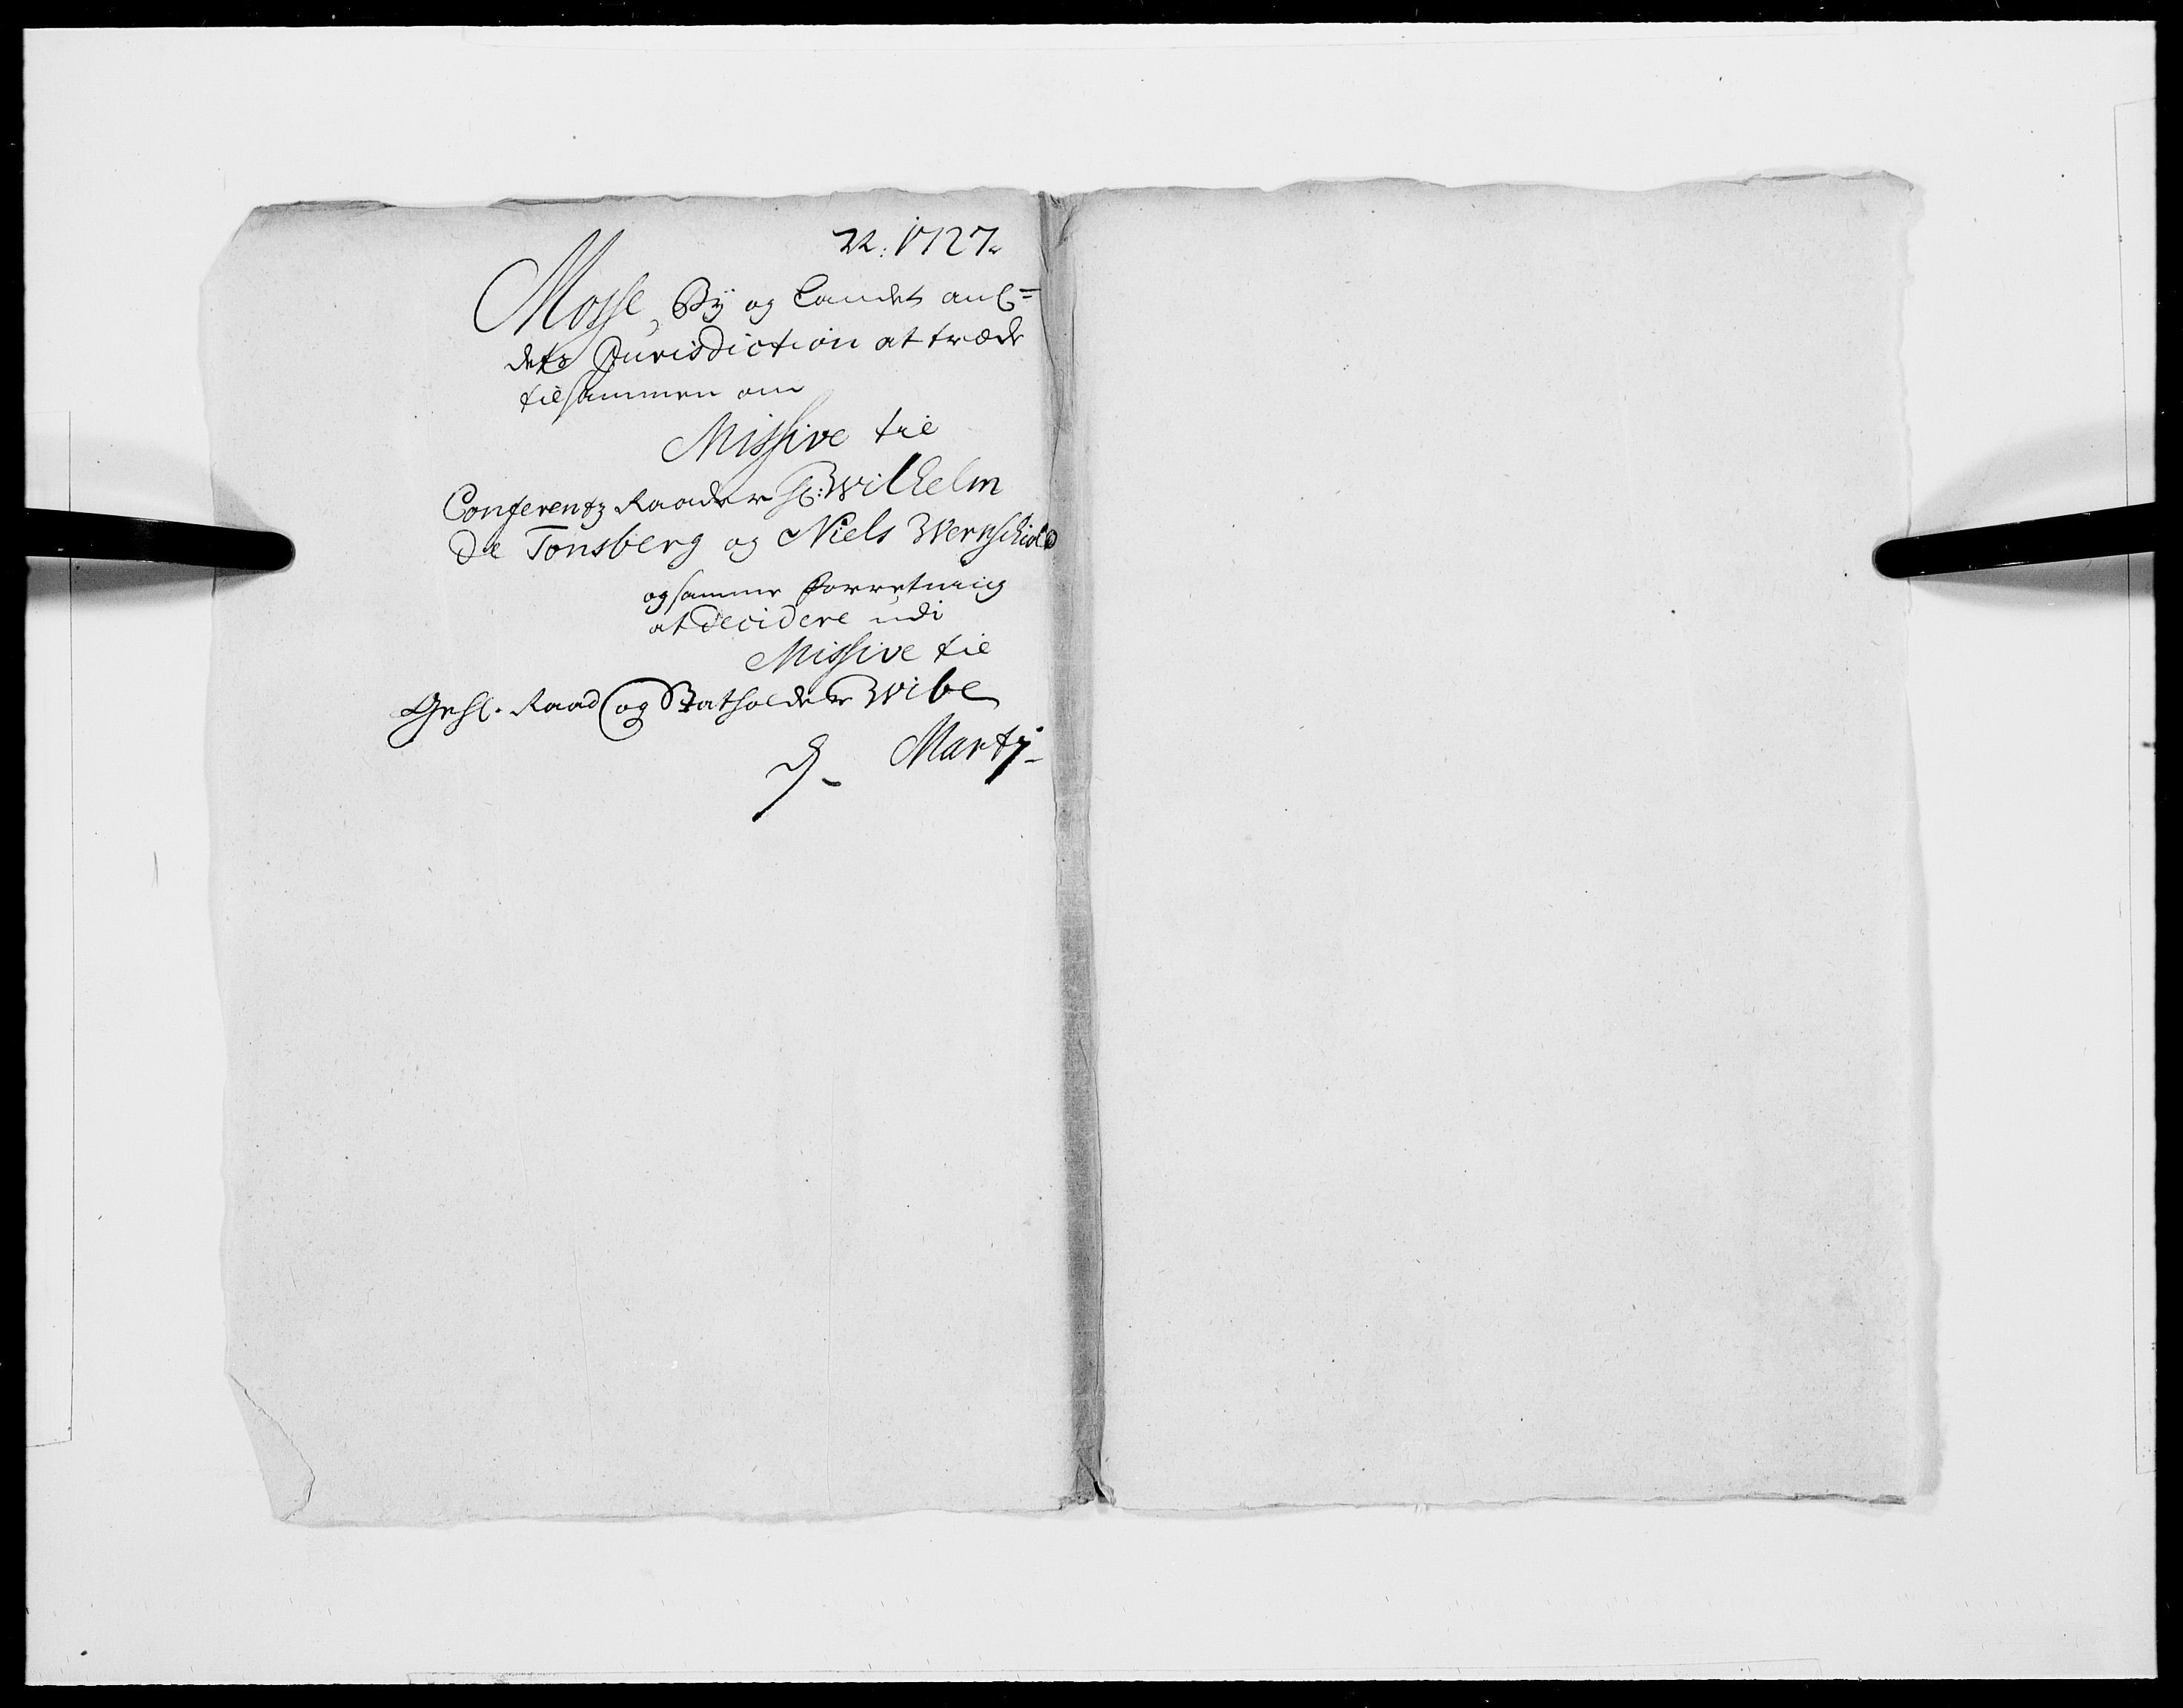 22: 1727.
Mosse By og Landet an¬
dets Jurisdiction at træde
tilsammen om
Missive til
Conferentz Raader H: Wilhelm
de Tonsberg og Niels Wernschiold
og samme Forretning
at decidere udi
Missive til
Geh. Raad og Statholder Wibe
d. Martj